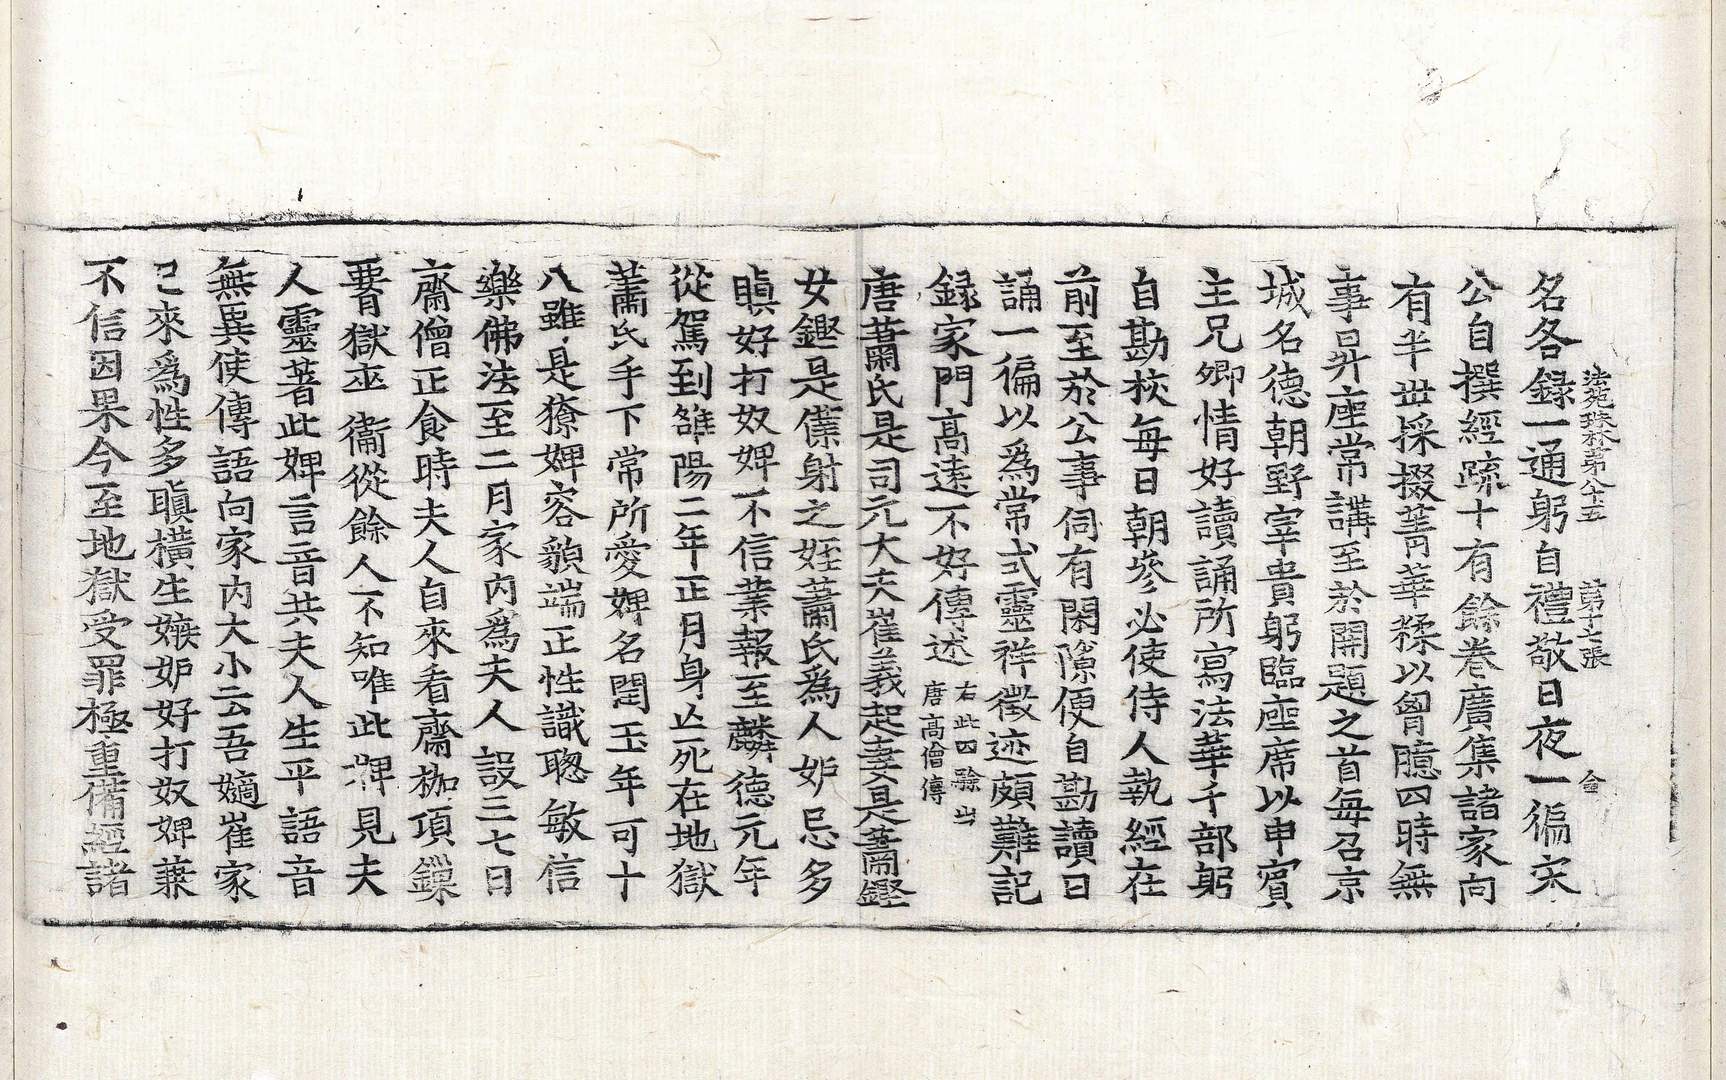 法苑珠林第八十五 第十七張 合
名各録一通躬自禮敬日夜一徧宋
公自撰經疏十有餘卷廣集諸家向
有半世採掇菁華糅以胷臆四時無
事昇座常講至於開題之首每召京
城名德朝野宰貴躬臨座席以申賓
主兄卿情好讀誦所寫法華千部躬
自勘挍每日朝參必使侍人執經在
前至於公事伺有閑隙便自勘讀日
誦一徧以爲常式靈祥徵迹頗難記
録家門高遠不好傳述右此四驗出唐高僧傳
唐蕭氏是司元大夫崔義起妻是蕭鏗
女鏗是僕射之姪蕭氏爲人妒忌多
瞋好打奴婢不信業報至麟德元年
從駕到雒陽二年正月身亡死在地獄
蕭氏手下常所愛婢名閏玉年可十
八雖是獠婢容貌端正性識聰敏信
樂佛法至二月家內爲夫人設三七日
齋僧正食時夫人自來看齋枷項鏁
腰獄卒衛從餘人不知唯此婢見夫
人靈著此婢言音共夫人生平語音
無異使傳語向家內大小云吾嫡崔家
已來爲性多瞋橫生嫉妒好打奴婢兼
不信因果今至地獄受罪極重備經諸